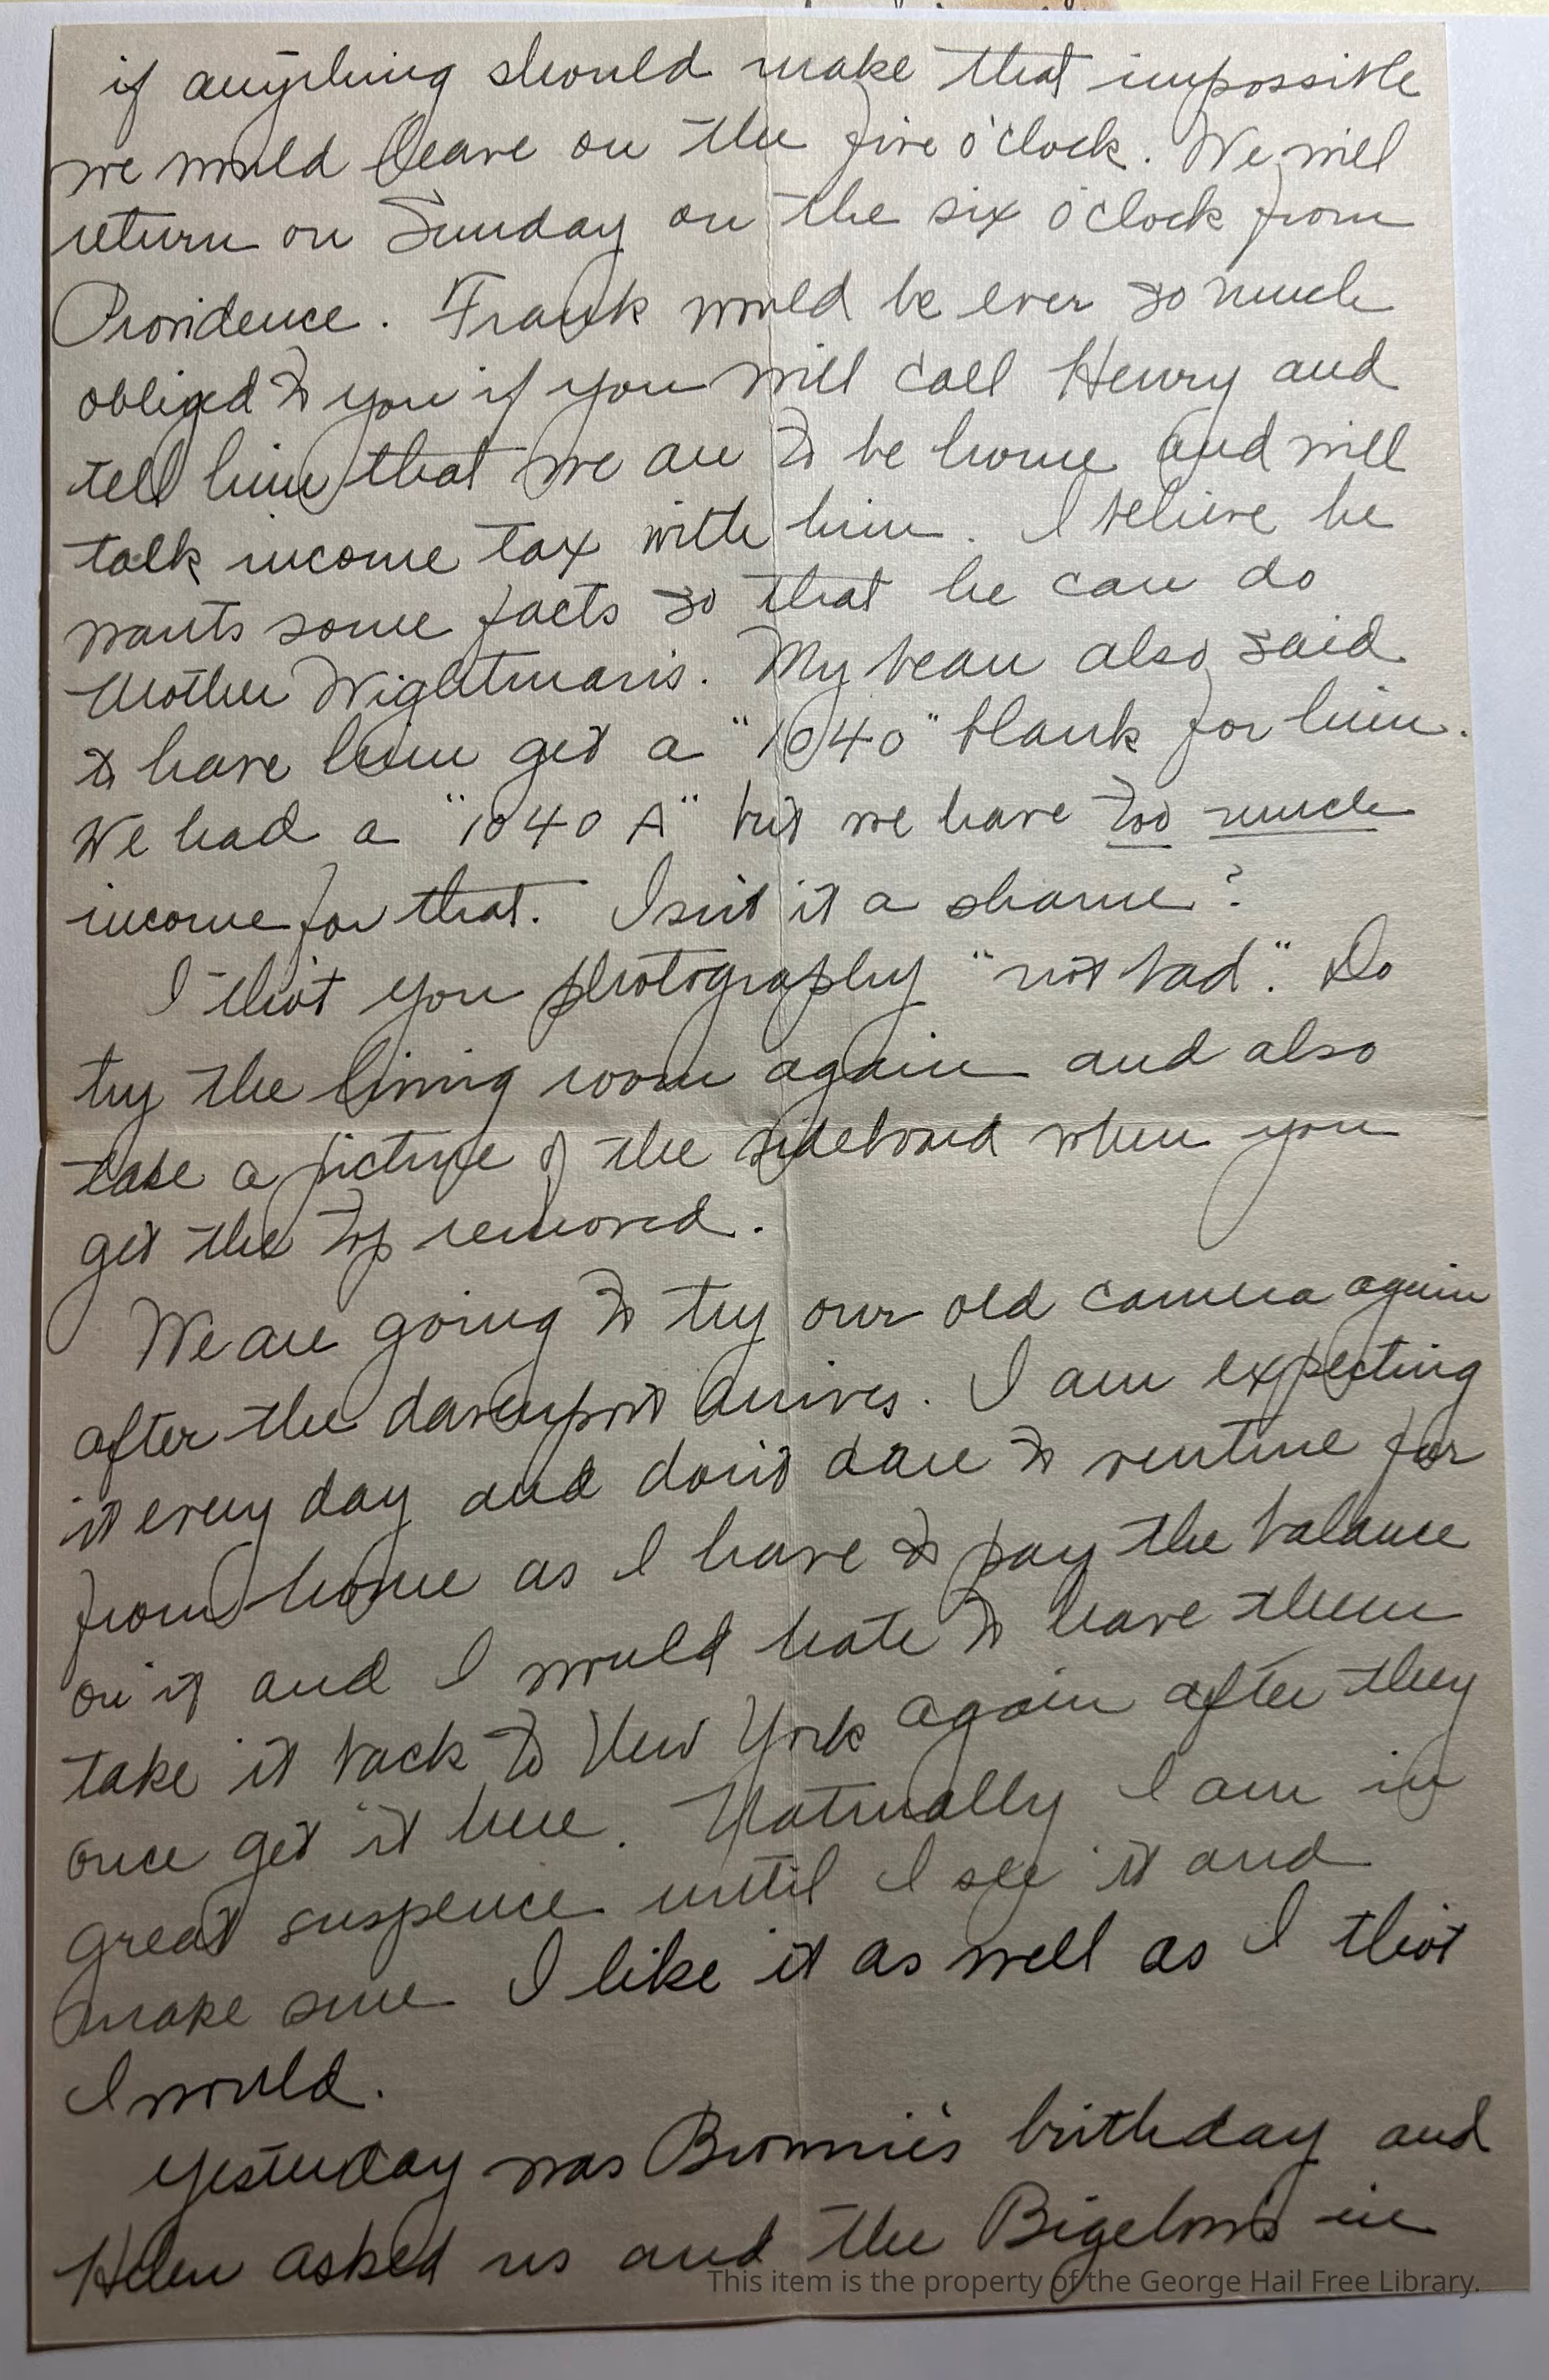 if anything should make that impossible
we would leave on the five o'clock. We will
return on Sunday on the six o'clock from
Providence. Frank would be ever so much
obliged to you if you will call Henry and
tell him that we are to be home and will
talk income tax with him. I believe he
wants some facts so that he can do
Mother Wightman's. My beau also said
to have him get a "1040" blank for him.
We had a "1040 A" but we have too much
income for that. Isn't it a shame?
I tho't you photography "not bad". Do
try the living room again and also
take a picture of the sideboard when you
get the top removed.
We are going to try our old camera again
after the davenport arrives. I am expecting
it every day and don't dare to venture far
from home as I have to pay the balance
on it and I would hate to have them
take it back to New York again after they
once get it here. Naturally I am in
great suspence until I see it and
make sure I like it as well as I tho't
I would.
Yesterday was Brownie's birthday and
Helen asked us and the Bigelows in
This item is the property of the George Hail Free Library.